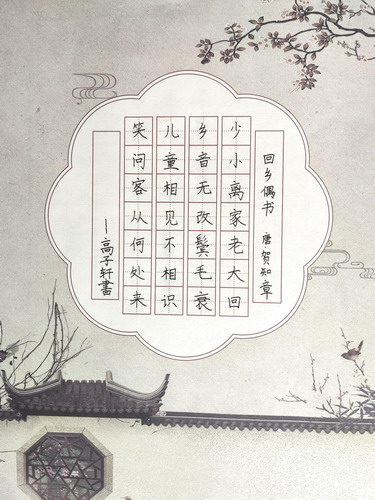 回乡偶书 唐贺知章
少小离家老大回
乡音无改鬓毛衰
儿童相见不相识
笑问客从何处来
—高子轩書